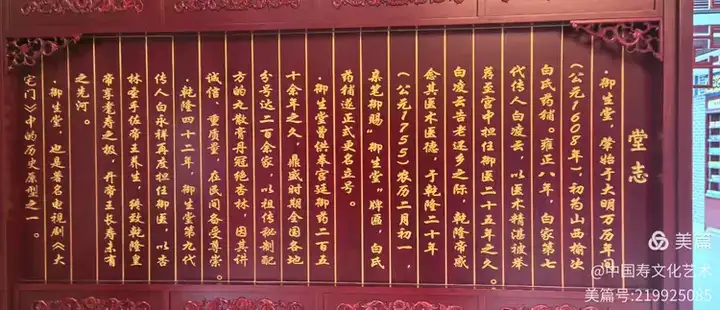 堂志
·御生堂，肇始于大明万历年间
（公元1608年），初为山西榆次
白氏药铺。雍正八年，白家第七
代传人白凌云，以医术精湛被举
荐至宫中担任御医二十五年之久。
白凌云告老还乡之际，乾隆帝感
念其医术医德，于乾隆二十年
（公元1755）农历二月初一，
亲笔御赐“御生堂”牌匾，白氏
药铺遂正式更名立号。
·御生堂曾供奉宫廷御药二百五
十余年之久，鼎盛时期全国各地
分号达二百余家，以祖传秘制配
方的丸散膏丹冠绝杏林，因其讲
诚信、重质量，在民间备受尊崇。
·乾隆四十二年，御生堂第九代
传人白永祥再度担任御医，以杏
林圣手佐帝王养生，终致乾隆皇
帝享耄寿之极，开帝王长寿未有
之先河。
·御生堂，也是著名电视剧《大
宅门》中的历史原型之一。
美篇
@中国寿文化艺术
美篇号:219925085